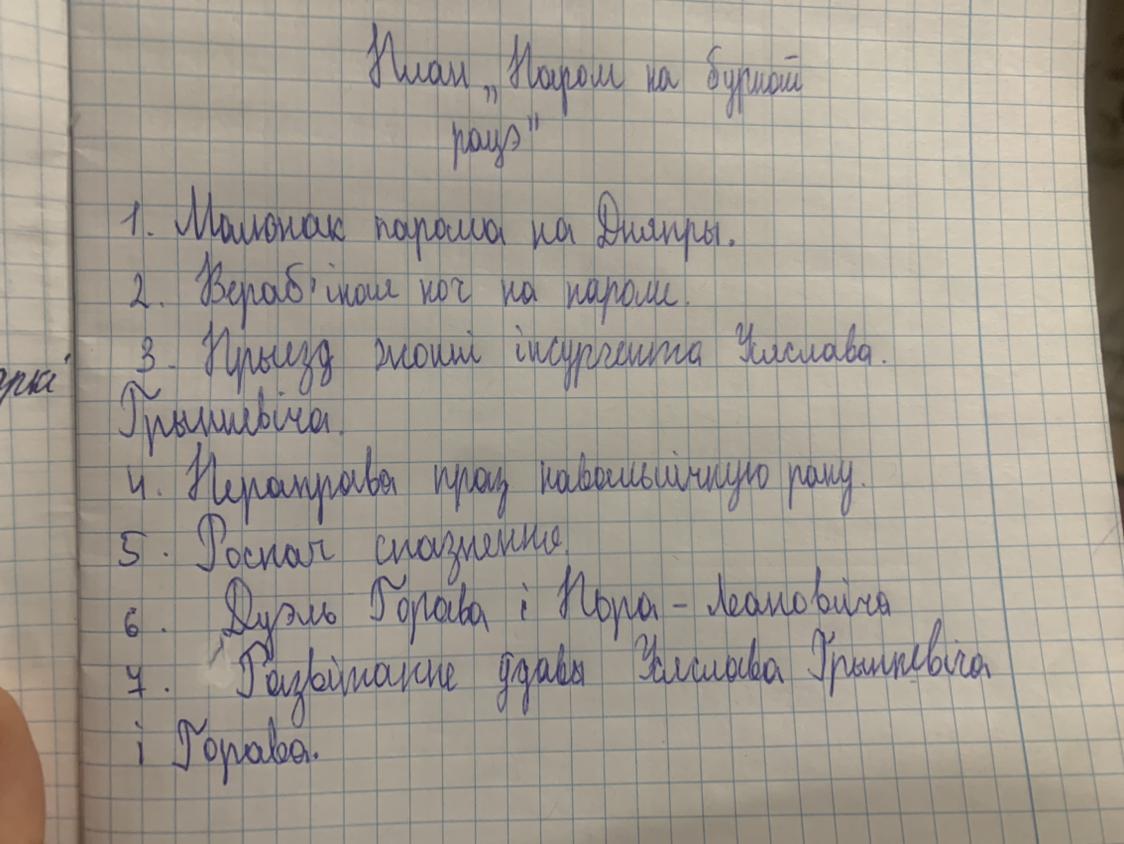 План „Паром на бурнай
рацэ"
1. Малюнак парома на Дняпры.
2. Вераб'іная ноч на пароме.
3. Прыезд жонкі інсургента Усяслава.
Грынкевіча.
4. Пераправа праз навальнічную раку.
5. Роспач спазнення.
6. Дуэль Горава і Пора-Леановіча
7. Развітанне ўдавы Усяслава Грынкевіча
і Горава.
аркі